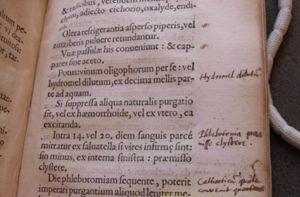 & radicibus, verentium
endiui, adiecto cichorio, oxalyde, endi-
Olera refrigerantia asperso piperis, vel
zinziberis puluere retunduntur.
Vuæ passulæ his conueniunt: & cap-
pares siue aceto.
Potus: vinum oligophorum per se: vel
hydromel dilutum, ex decima mellis par-
te ad aquam.
Si suppressa aliqua naturalis purgatio
sit, vel ex hæmorrhoide, vel ex vtero, ea
excitanda.
Intra 14. vel 20. diem sanguis parcè
mittatur ex saluatella si vires infirmę sint:
sin minus, ex interna sinistra: præmisso
clystere.
Die phlebotomiam sequente, poterit
imperari purgantium aliquod lenter me-
Hydromel dilutū
Phlebotomia præ
misso clystere.
Catharticū quale
conuenit quartanæ